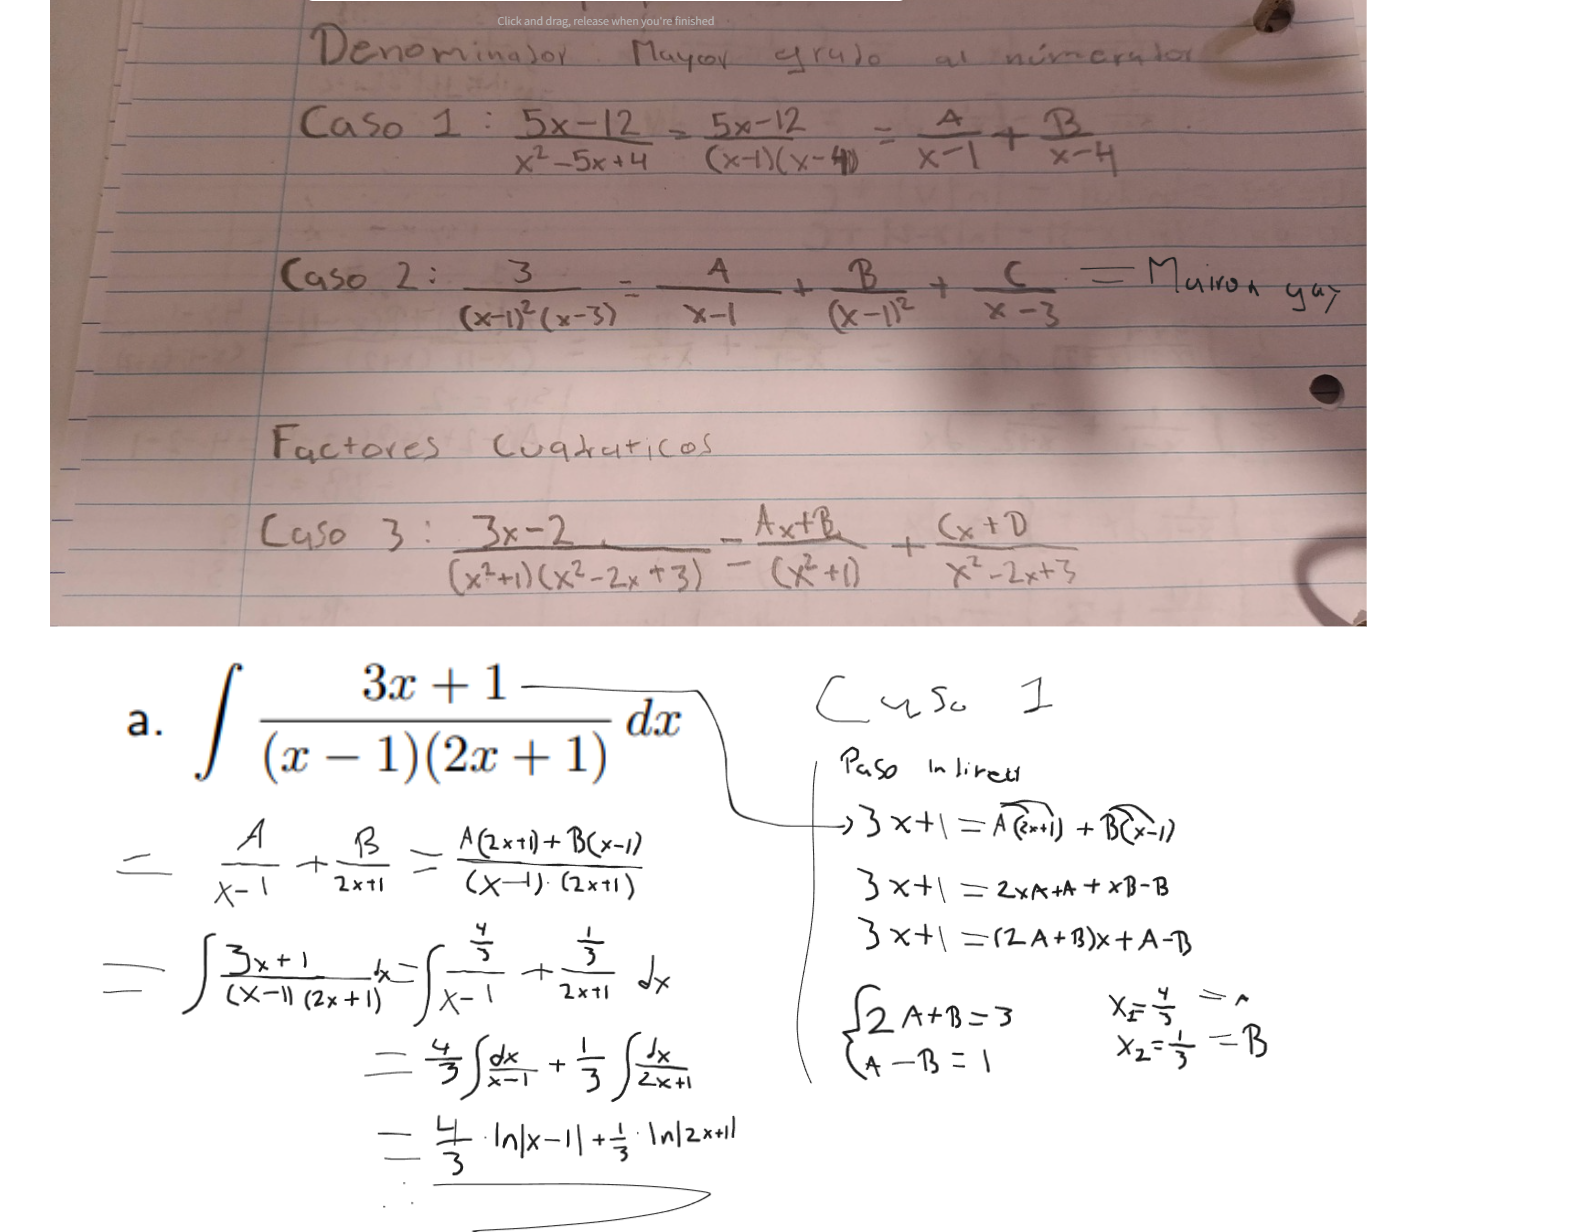 Click and drag, release when you're finished
Denominador Mayor grado al númerador
Caso 1 : 5x-12/x²-5x+4 = 5x-12/(x-1)(x-4) = A/x-1 + B/x-4
Caso 2: 3/(x-1)²(x-3) = A/x-1 + B/(x-1)² + C/x-3 = Mairon gay
Factores Cuadraticos
Caso 3 : 3x-2/(x²+1)(x²-2x+3) = Ax+B/(x²+1) + Cx+D/x²-2x+3
a. ∫ 3x + 1/(x − 1)(2x + 1) dx
= A/x-1 + B/2x+1 = A(2x+1)+B(x-1)/(x-1)·(2x+1)
= ∫ 3x+1/(x-1)(2x+1) dx = ∫ 4/3/x-1 + 1/3/2x+1 dx
= 4/3 ∫ dx/x-1 + 1/3 ∫ dx/2x+1
= 4/3 · ln|x-1| + 1/3 · ln|2x+1|
Caso 1
Paso Indirect
3x+1 = A(2x+1) + B(x-1)
3x+1 = 2xA+A + xB-B
3x+1 = (2A+B)x+A-B
{2A+B=3 x₁=4/3 = A
A-B=1 x₂=1/3 = B